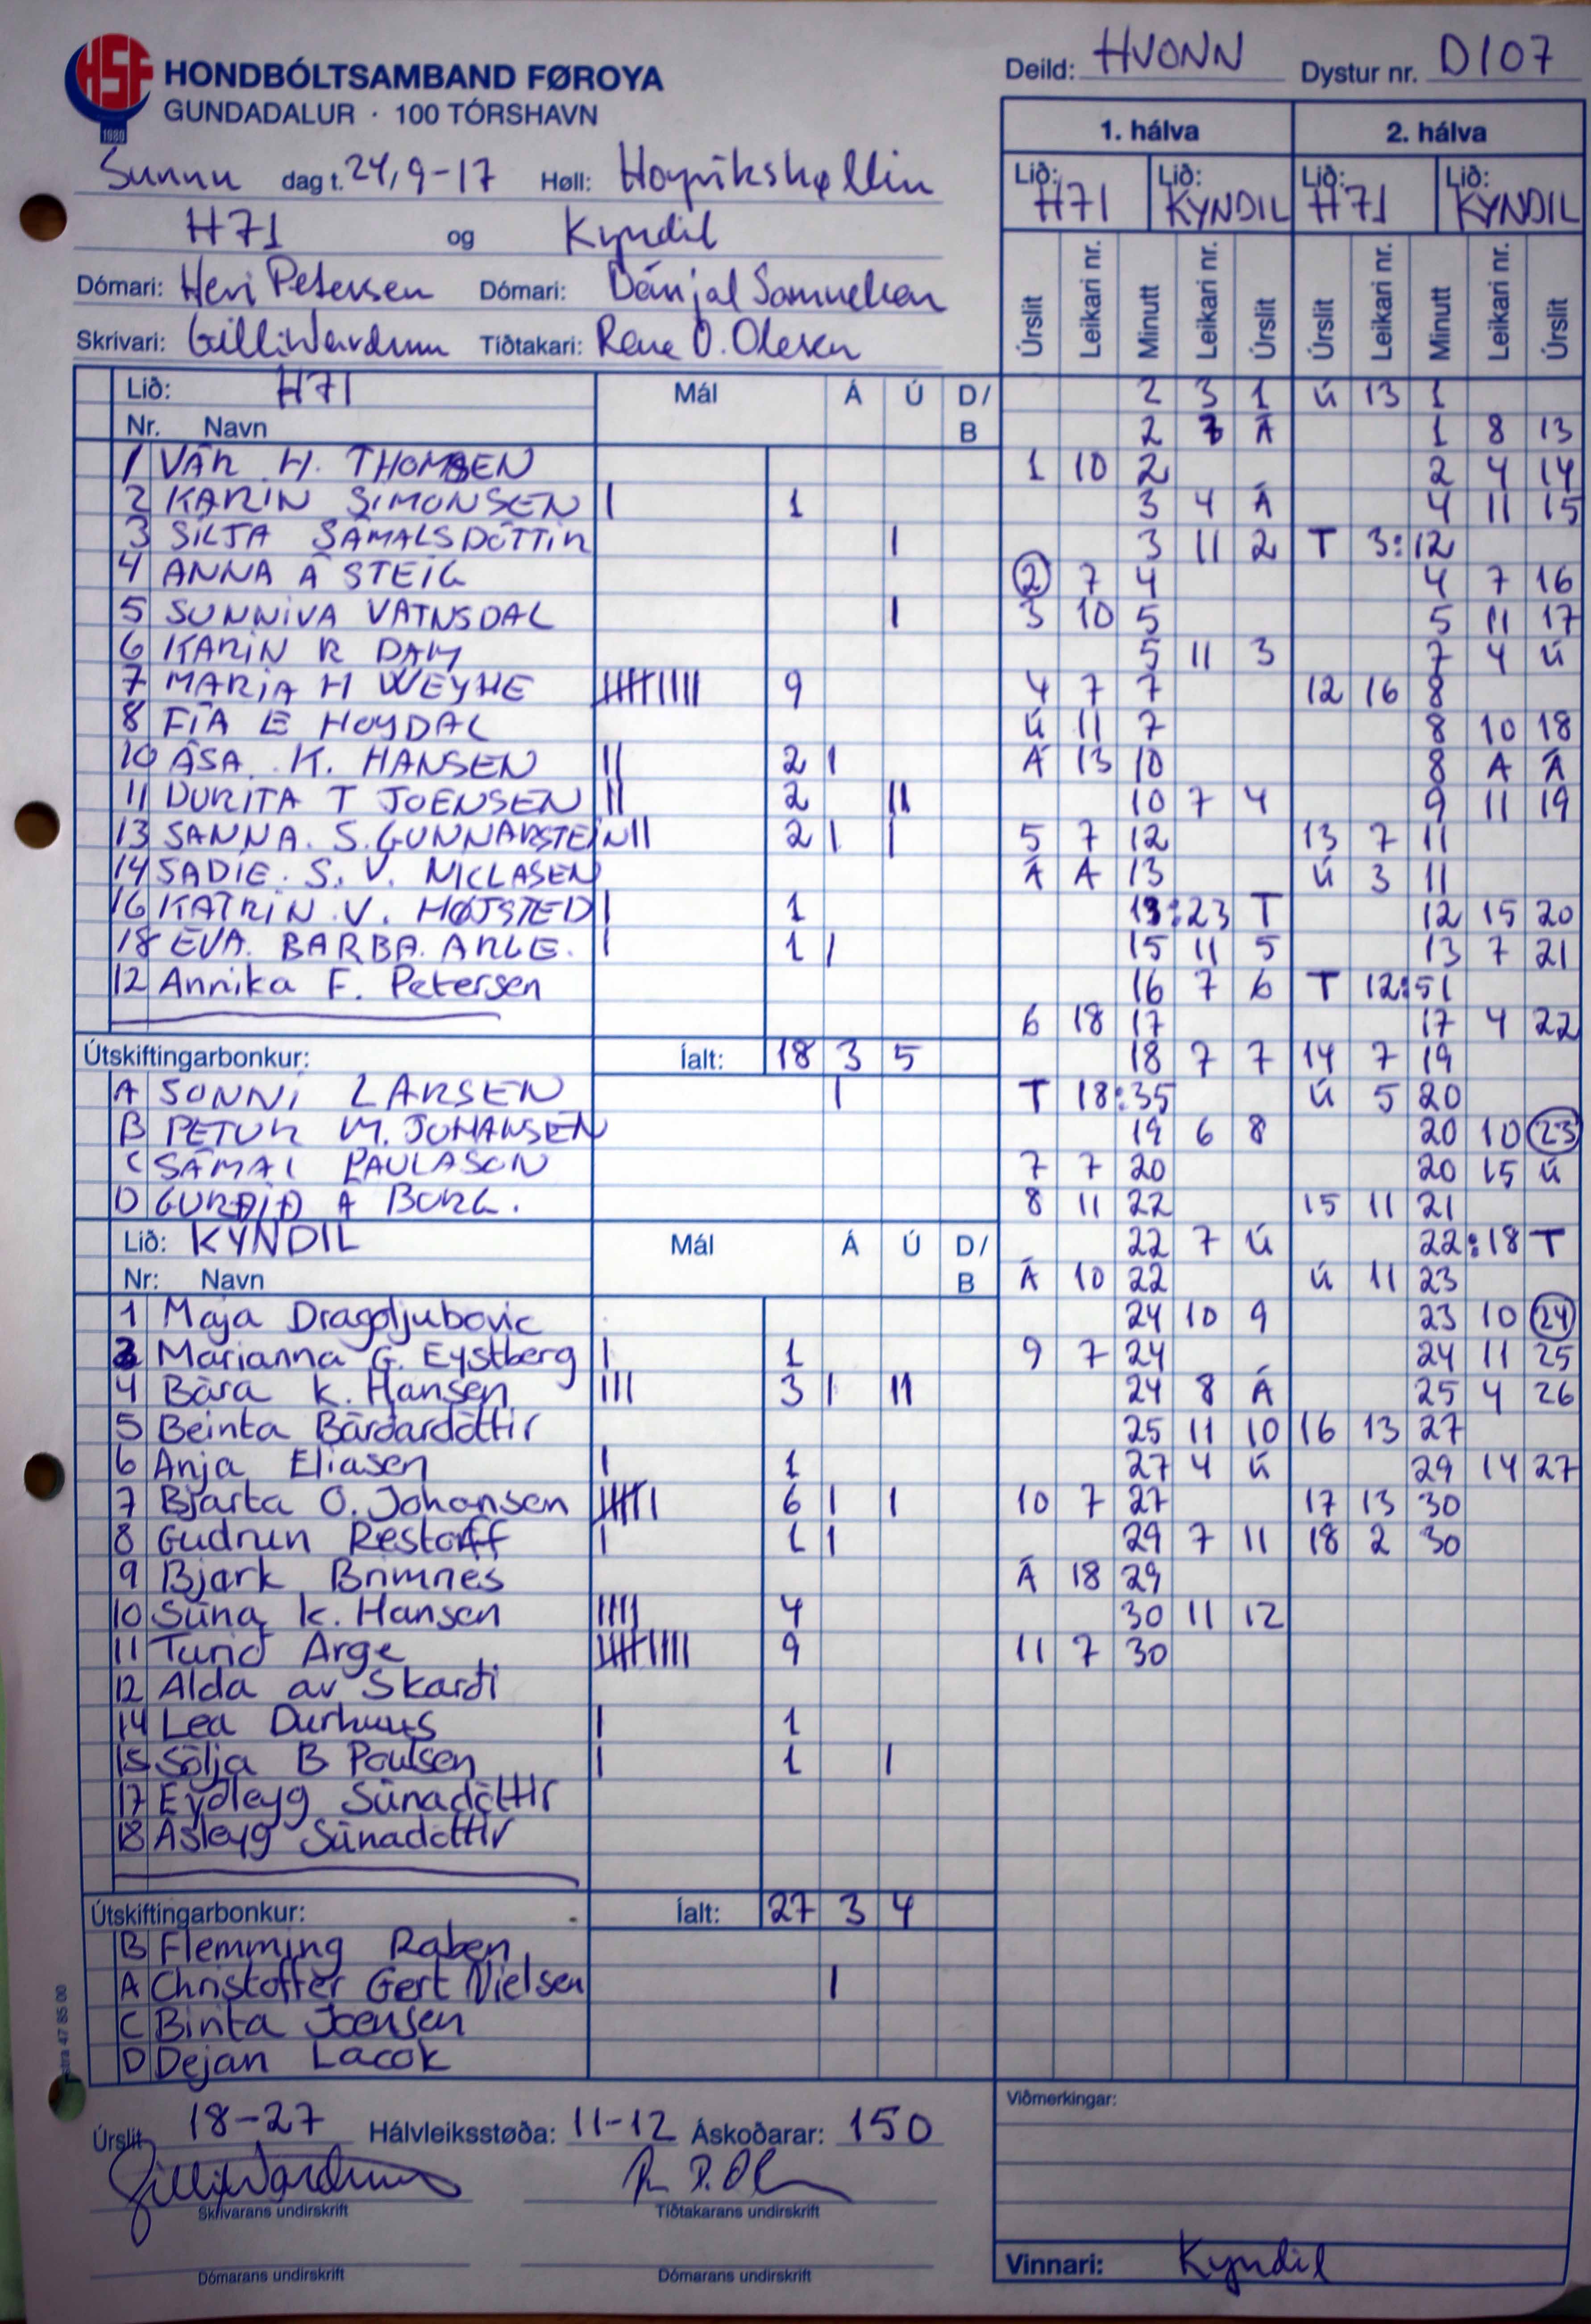 HSF
1980
HONDBÓLTSAMBAND FØROYA
GUNDADALUR · 100 TÓRSHAVN
Deild: HVONN Dystur nr. D107
Sunnu dag t. 24,9-17 Høll:
H71 og Kyndil
Dómari: Heri Petersen Dómari: Dánjal Samuelsen
Skrivari: Tíðtakari: Rene O. Olesen
1. hálva 2. hálva
Lið: H71 Lið: KYNDIL Lið: H71 Lið: KYNDIL
Úrslit Leikari nr. Minutt Leikari nr. Úrslit Úrslit Leikari nr. Minutt Leikari nr. Úrslit
Lið: H71 Mál Á Ú D/B
Nr. Navn
1 VÁR H. THOMSEN
2 KARIN SIMONSEN I 1
3 SILJA SÁMALSDÓTTIR I
4 ANNA Á STEIG
5 SUNNIVA VATNSDAL I
6 KARIN R DAM
7 MARIA H WEYHE IIIIIIIII 9
8 FÍA E HOYDAL
10 ÁSA K. HANSEN II 2 I
11 DURITA T JOENSEN II 2 II
13 SANNA. S. GUNNARSTEIN II 2 I I
14 SADIE. S. V. NICLASEN
16 KATRIN. V. HØJSTED I 1
18 EVA. BARBA. ARGE. I 1 I
12 Annika F. Petersen
Útskiftingarbonkur: Íalt: 18 3 5
A SONNI LARSEN I
B PETUR M. JOHANSEN
C SÁMAL PAULASON
D GURÐIÐ Á BORG.
Lið: KYNDIL Mál Á Ú D/B
Nr: Navn
1 Maja Dragoljubovic
3 Marianna G. Eystberg I 1
4 Bára K. Hansen III 3 I II
5 Beinta Bárðardóttir
6 Anja Eliasen I 1
7 Bjarta O. Johansen IIIIII 6 I I
8 Gudrun Restorff I 1 I
9 Bjørk Brimnes
10 Súna K. Hansen IIII 4
11 Turid Arge IIIIIIIII 9
12 Alda av Skarði
14 Lea Durhuus I 1
15 Sólja B Poulsen I 1 I
17 Eyðleyg Súnadóttir
18 Ásleyg Súnadóttir
Útskiftingarbonkur: Íalt: 27 3 4
B Flemming Raben
A Christoffer Gert Nielsen I
C Binta Joensen
D Dejan Lacok
2 3 1 Ú 13 1
2 7 Á 1 8 13
1 10 2 2 4 14
3 4 Á 4 11 15
3 11 2 T 3:12
2 7 4 4 7 16
3 10 5 5 11 17
5 11 3 7 4 Ú
4 7 7 12 16 8
Ú 11 7 8 10 18
Á 13 10 8 A Á
10 7 4 9 11 19
5 7 12 13 7 11
Á A 13 Ú 3 11
13:23 T 12 15 20
15 11 5 13 7 21
16 7 6 T 12:51
6 18 17 17 4 22
18 7 7 14 7 19
T 18:35 Ú 5 20
19 6 8 20 10 23
7 7 20 20 15 Ú
8 11 22 15 11 21
22 7 Ú 22:18 T
Á 10 22 Ú 11 23
24 10 9 23 10 24
9 7 24 24 11 25
24 8 Á 25 4 26
25 11 10 16 13 27
27 4 Ú 29 14 27
10 7 27 17 13 30
29 7 11 18 2 30
Á 18 29
30 11 12
11 7 30
Úrslit 18-27 Hálvleiksstøða: 11-12 Áskoðarar: 150
Skrivarans undirskrift Tíðtakarans undirskrift
Dómarans undirskrift Dómarans undirskrift
Viðmerkingar:
Vinnari: Kyndil
47 85 00